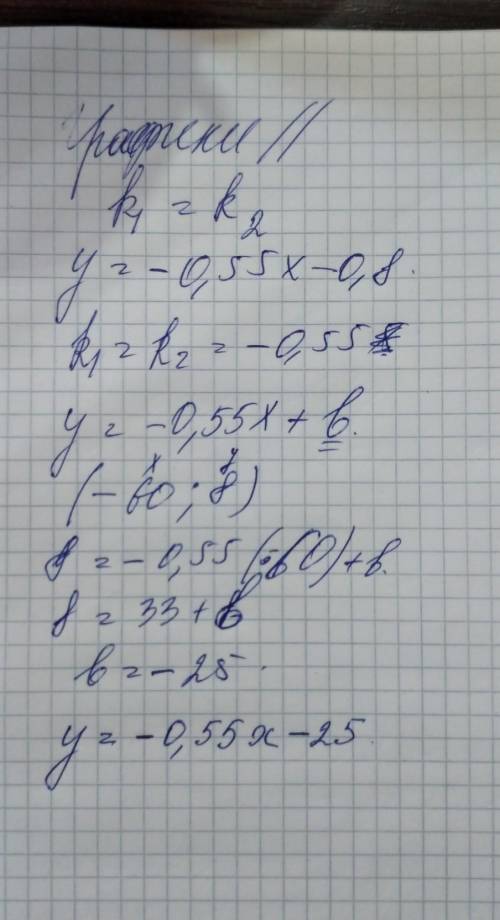 Графики //
k₁ = k₂
y = -0,55x - 0,8.
k₁ = k₂ = -0,55
y = -0,55x + b.
x y
(-60 ; 8)
8 = -0,55 (-60) + b.
8 = 33 + b
b = -25.
y = -0,55x - 25.